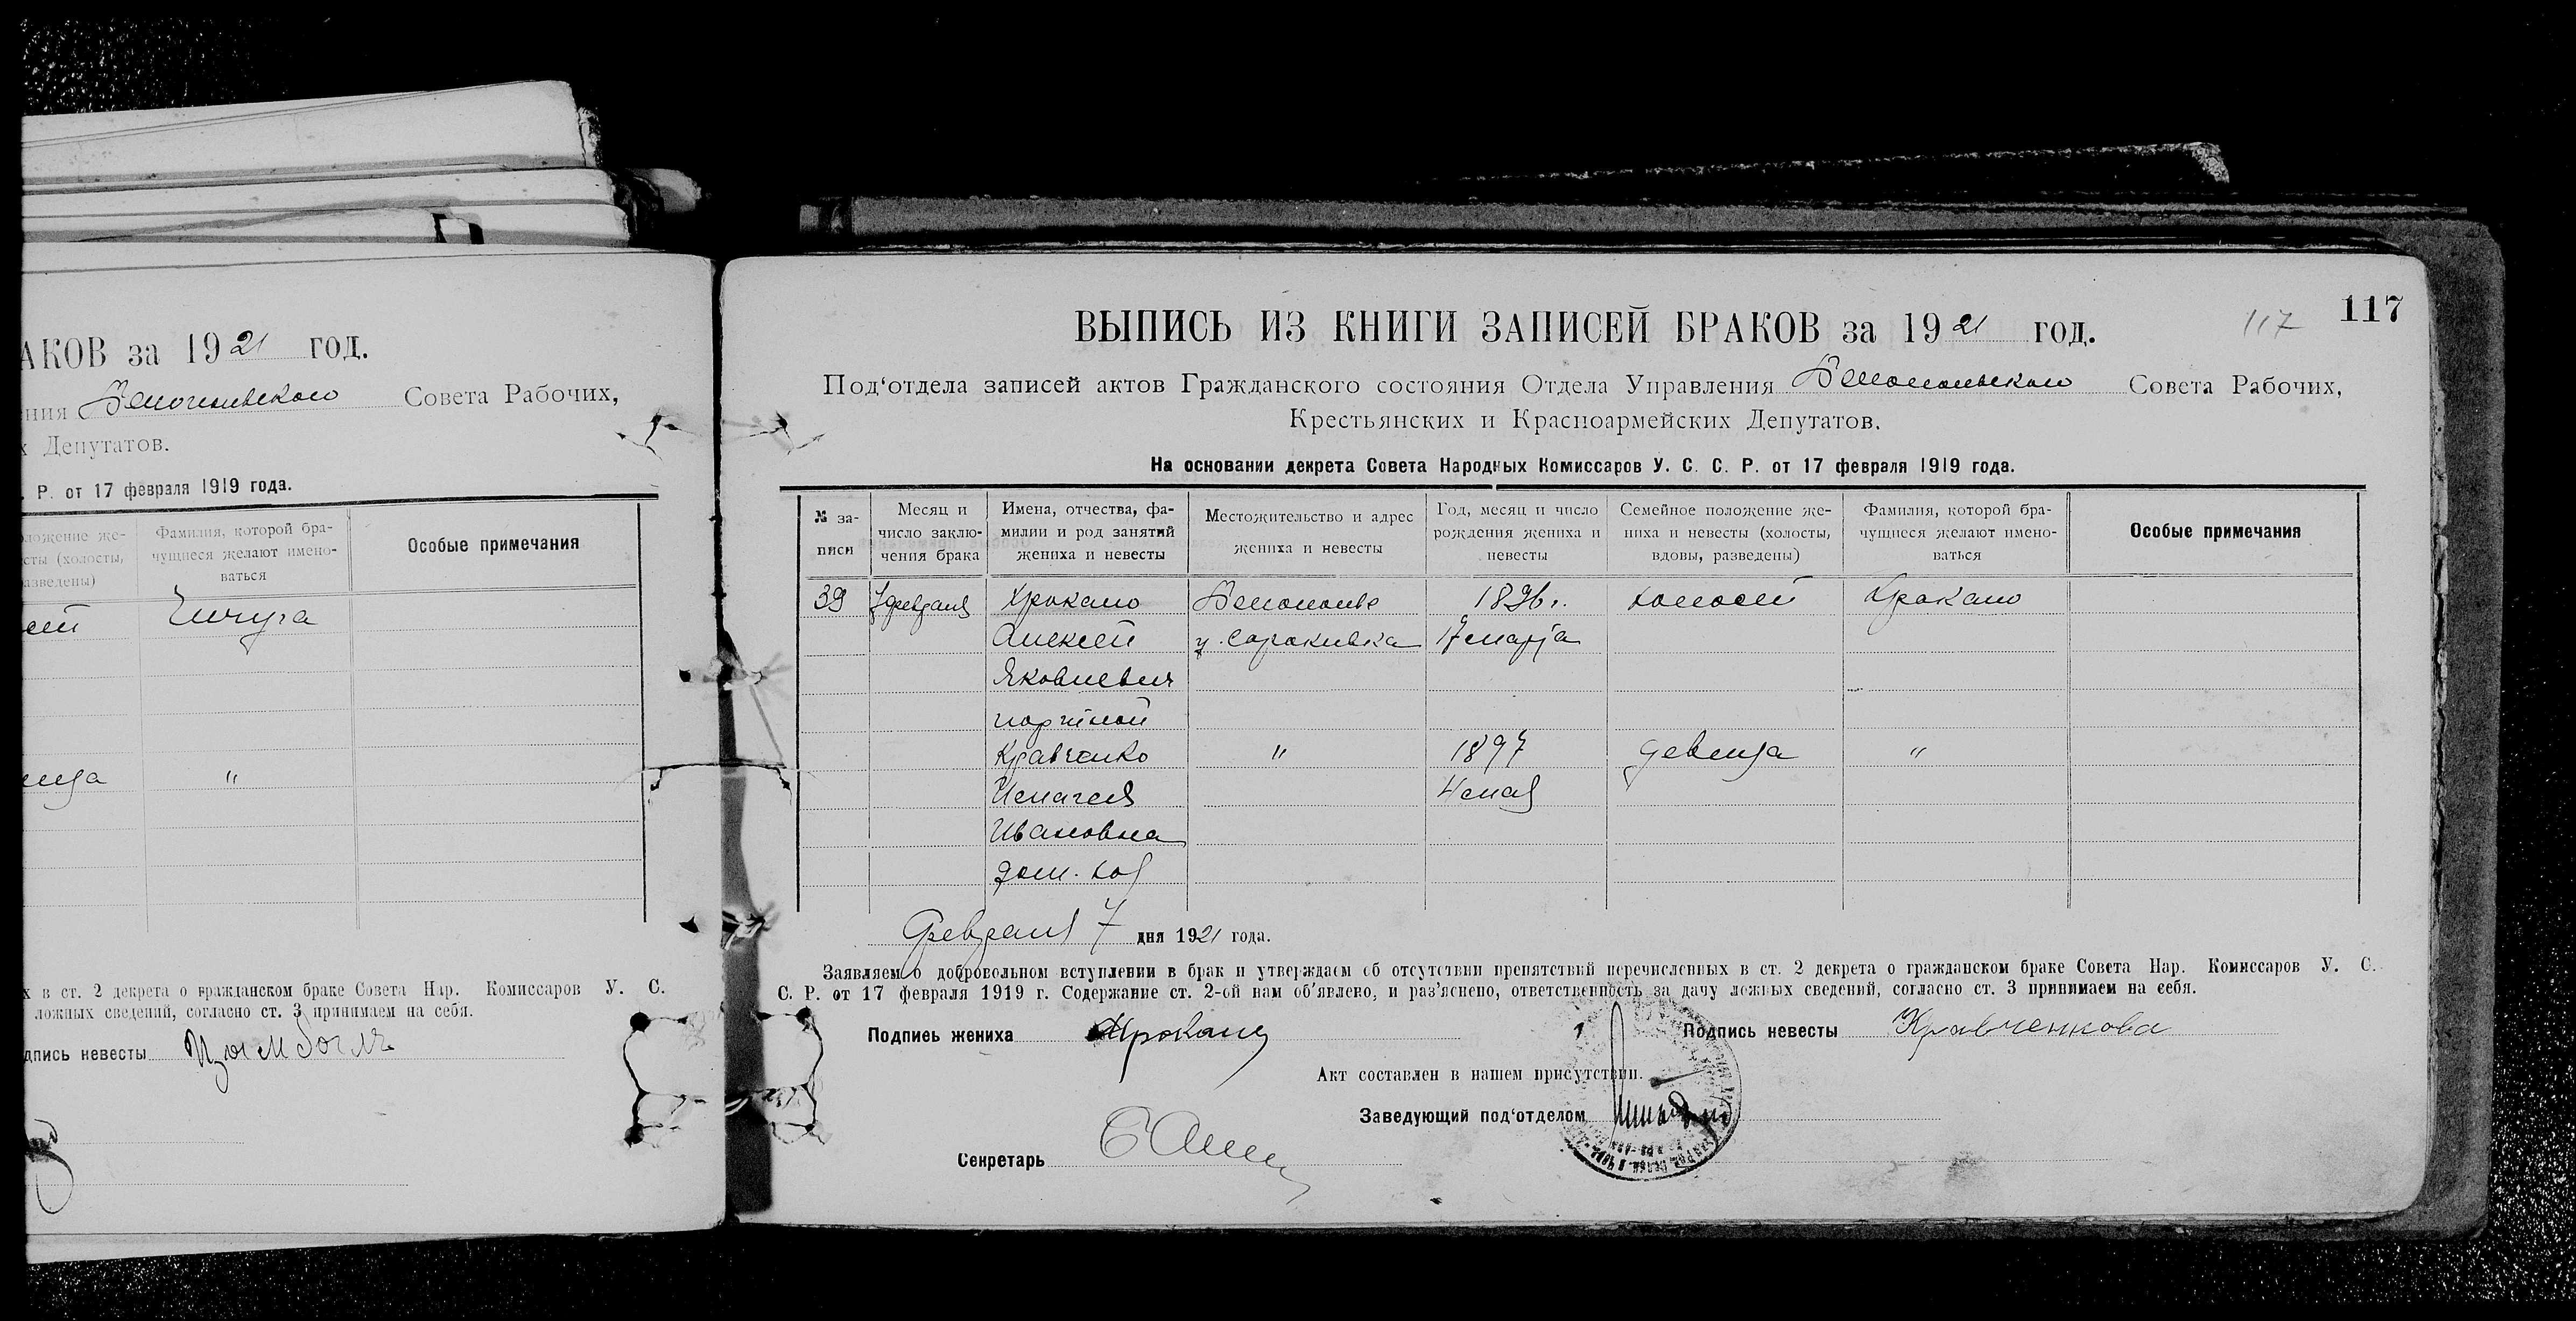 АКОВ за 1921 год.
ния Белопольского Совета Рабочих,
х Депутатов.
. Р. от 17 февраля 1919 года.
оложение же-
сты (холосты,
азведены)
Фамилия, которой бра-
чущиеся желают имено-
ваться
Особые примечания
"
х в ст. 2 декрета о гражданском браке Совета Нар. Комиссаров У. С.
ложных сведений, согласно ст. 3 принимаем на себя.
дпись невесты
117
117
ВЫПИСЬ ИЗ КНИГИ ЗАПИСЕЙ БРАКОВ за 1921 год.
Под‘отдела записей актов Гражданского состояния Отдела Управления Белопольского Совета Рабочих,
Крестьянских и Красноармейских Депутатов.
На основании декрета Совета Народных Комиссаров У. С. С. Р. от 17 февраля 1919 года.
№ за-
писи
Месяц и
число заклю-
чения брака
Имена, отчества, фа-
милии и род занятий
жениха и невесты
Местожительство и адрес
жениха и невесты
Год, месяц и число
рождения жениха и
невесты
Семейное положение же-
ниха и невесты (холосты,
вдовы, разведены)
Фамилия, которой бра-
чущиеся желают имено-
ваться
Особые примечания
39 7 февраля Хрокало Белополье 1896 г. холост Хрокало
Алексей у. Сорокивка 17 марта
Яковлевич
портной
Кравченко " 1897 девица "
4 мая
Ивановна
дом. хоз
Февраля 7 дня 1921 года.
Заявляем о добровольном вступлении в брак и утверждаем об отсутствии препятствий перечисленных в ст. 2 декрета о гражданском браке Совета Нар. Комиссаров У. С.
С. Р. от 17 февраля 1919 г. Содержание ст. 2-ой нам об‘явлено, и раз‘яснено, ответственность за дачу ложных сведений, согласно ст. 3 принимаем на себя.
Подпись жениха Хрокало Подпись невесты Кравченкова
Акт составлен в нашем присутствии.
Заведующий под‘отделом
Секретарь